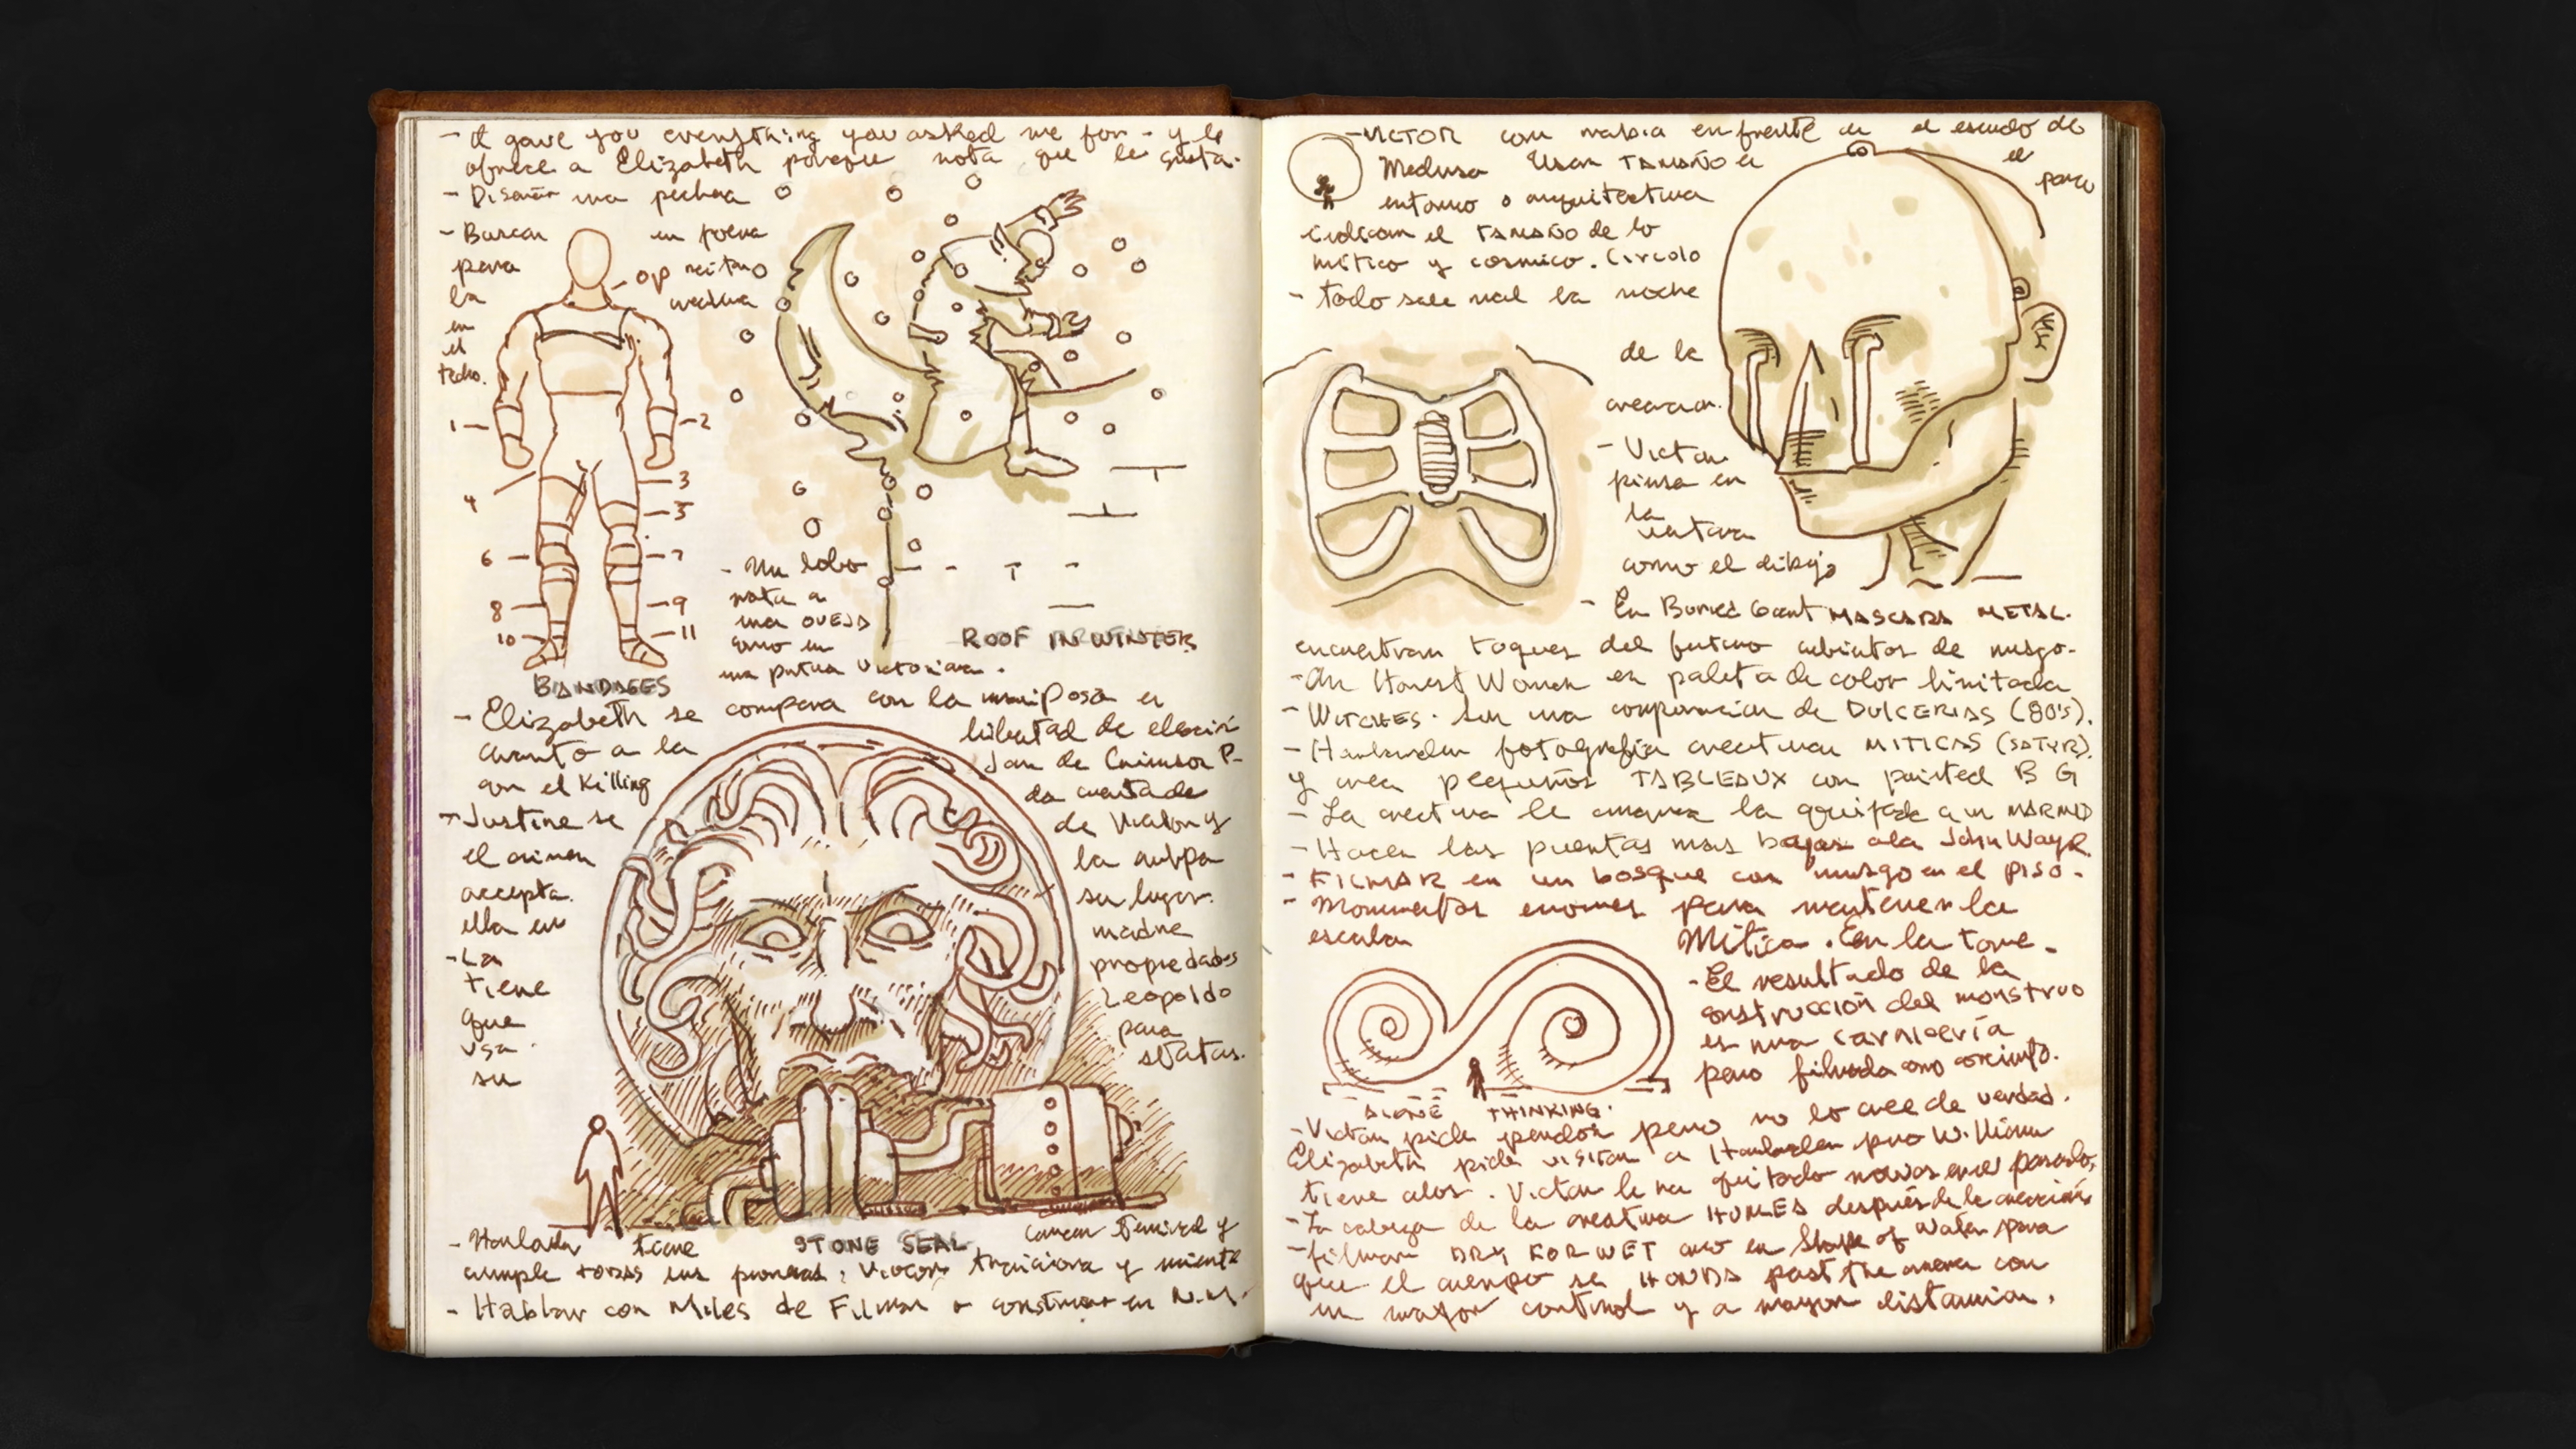 - I gave you everything you asked me for - y le
ofrece a Elizabeth porque nota que le gusta.
- Diseñar una pechera
- Buscar
para
la
en
el
techo.
en forma
op
1
2
3
4
5
6
7
8
9
10
11
BANDAGES
- Un lobo
mata a
una OVEJA
como en
una pintura Victoriana.
ROOF IN WINTER
- Elizabeth se compara con la mariposa en
cuanto a la
libertad de elección
con el Killing
Jan de Crimson P-
da cuenta de
- Justine se
de Victor y
el crimen
la culpa
accepta
su lugar.
ella en
madre
- La
propiedades
tiene
Leopoldo
que
para
usa
statas.
su
STONE SEAL
- Harlander tiene
cancer terminal y
cumple todas sus promesas, Victor traiciona y miente
- Hablar con Miles de Filmar o construir en N.M.
- VICTOR con rabia en frente de el escudo de
Medusa Usar TAMAÑO de
el
para
entorno o arquitectura
indican el TAMAÑO de lo
mítico y cósmico. Circulo
- todo sale mal la noche
de la
creacion.
- Victor
piensa en
la
como el dibujo
- En Buried Giant MASCARA METAL.
encuentran toques del futuro cubiertos de musgo.
- An Honest Woman en paleta de color limitada
- WITCHES. Son una corporación de DULCERIAS (80's).
- Harlander fotografía creaturas MITICAS (SATYR).
y crea pequeños TABLEAUX con painted B G
- La creatura le arranca la quijada a un MARINO
- Hacer las puertas mas bajas a la John Wayne
- FILMAR en un bosque con musgo en el piso.
- Monumentos enormes para mantener la
escala
Mítica. En la torre.
- El resultado de la
construcción del monstruo
es una carnicería
pero filmada como
ALONE THINKING.
- Victor pide perdón pero no lo cree de verdad.
Elizabeth pide visitar a Harlander pero William
tiene celos. Victor le ha quitado novias en el pasado,
- La cabeza de la creatura HUMEA después de la creación
- filmar DRY FOR WET como en Shape of Water para
que el cuerpo se HUNDA past the camera con
un mayor control y a mayor distancia.